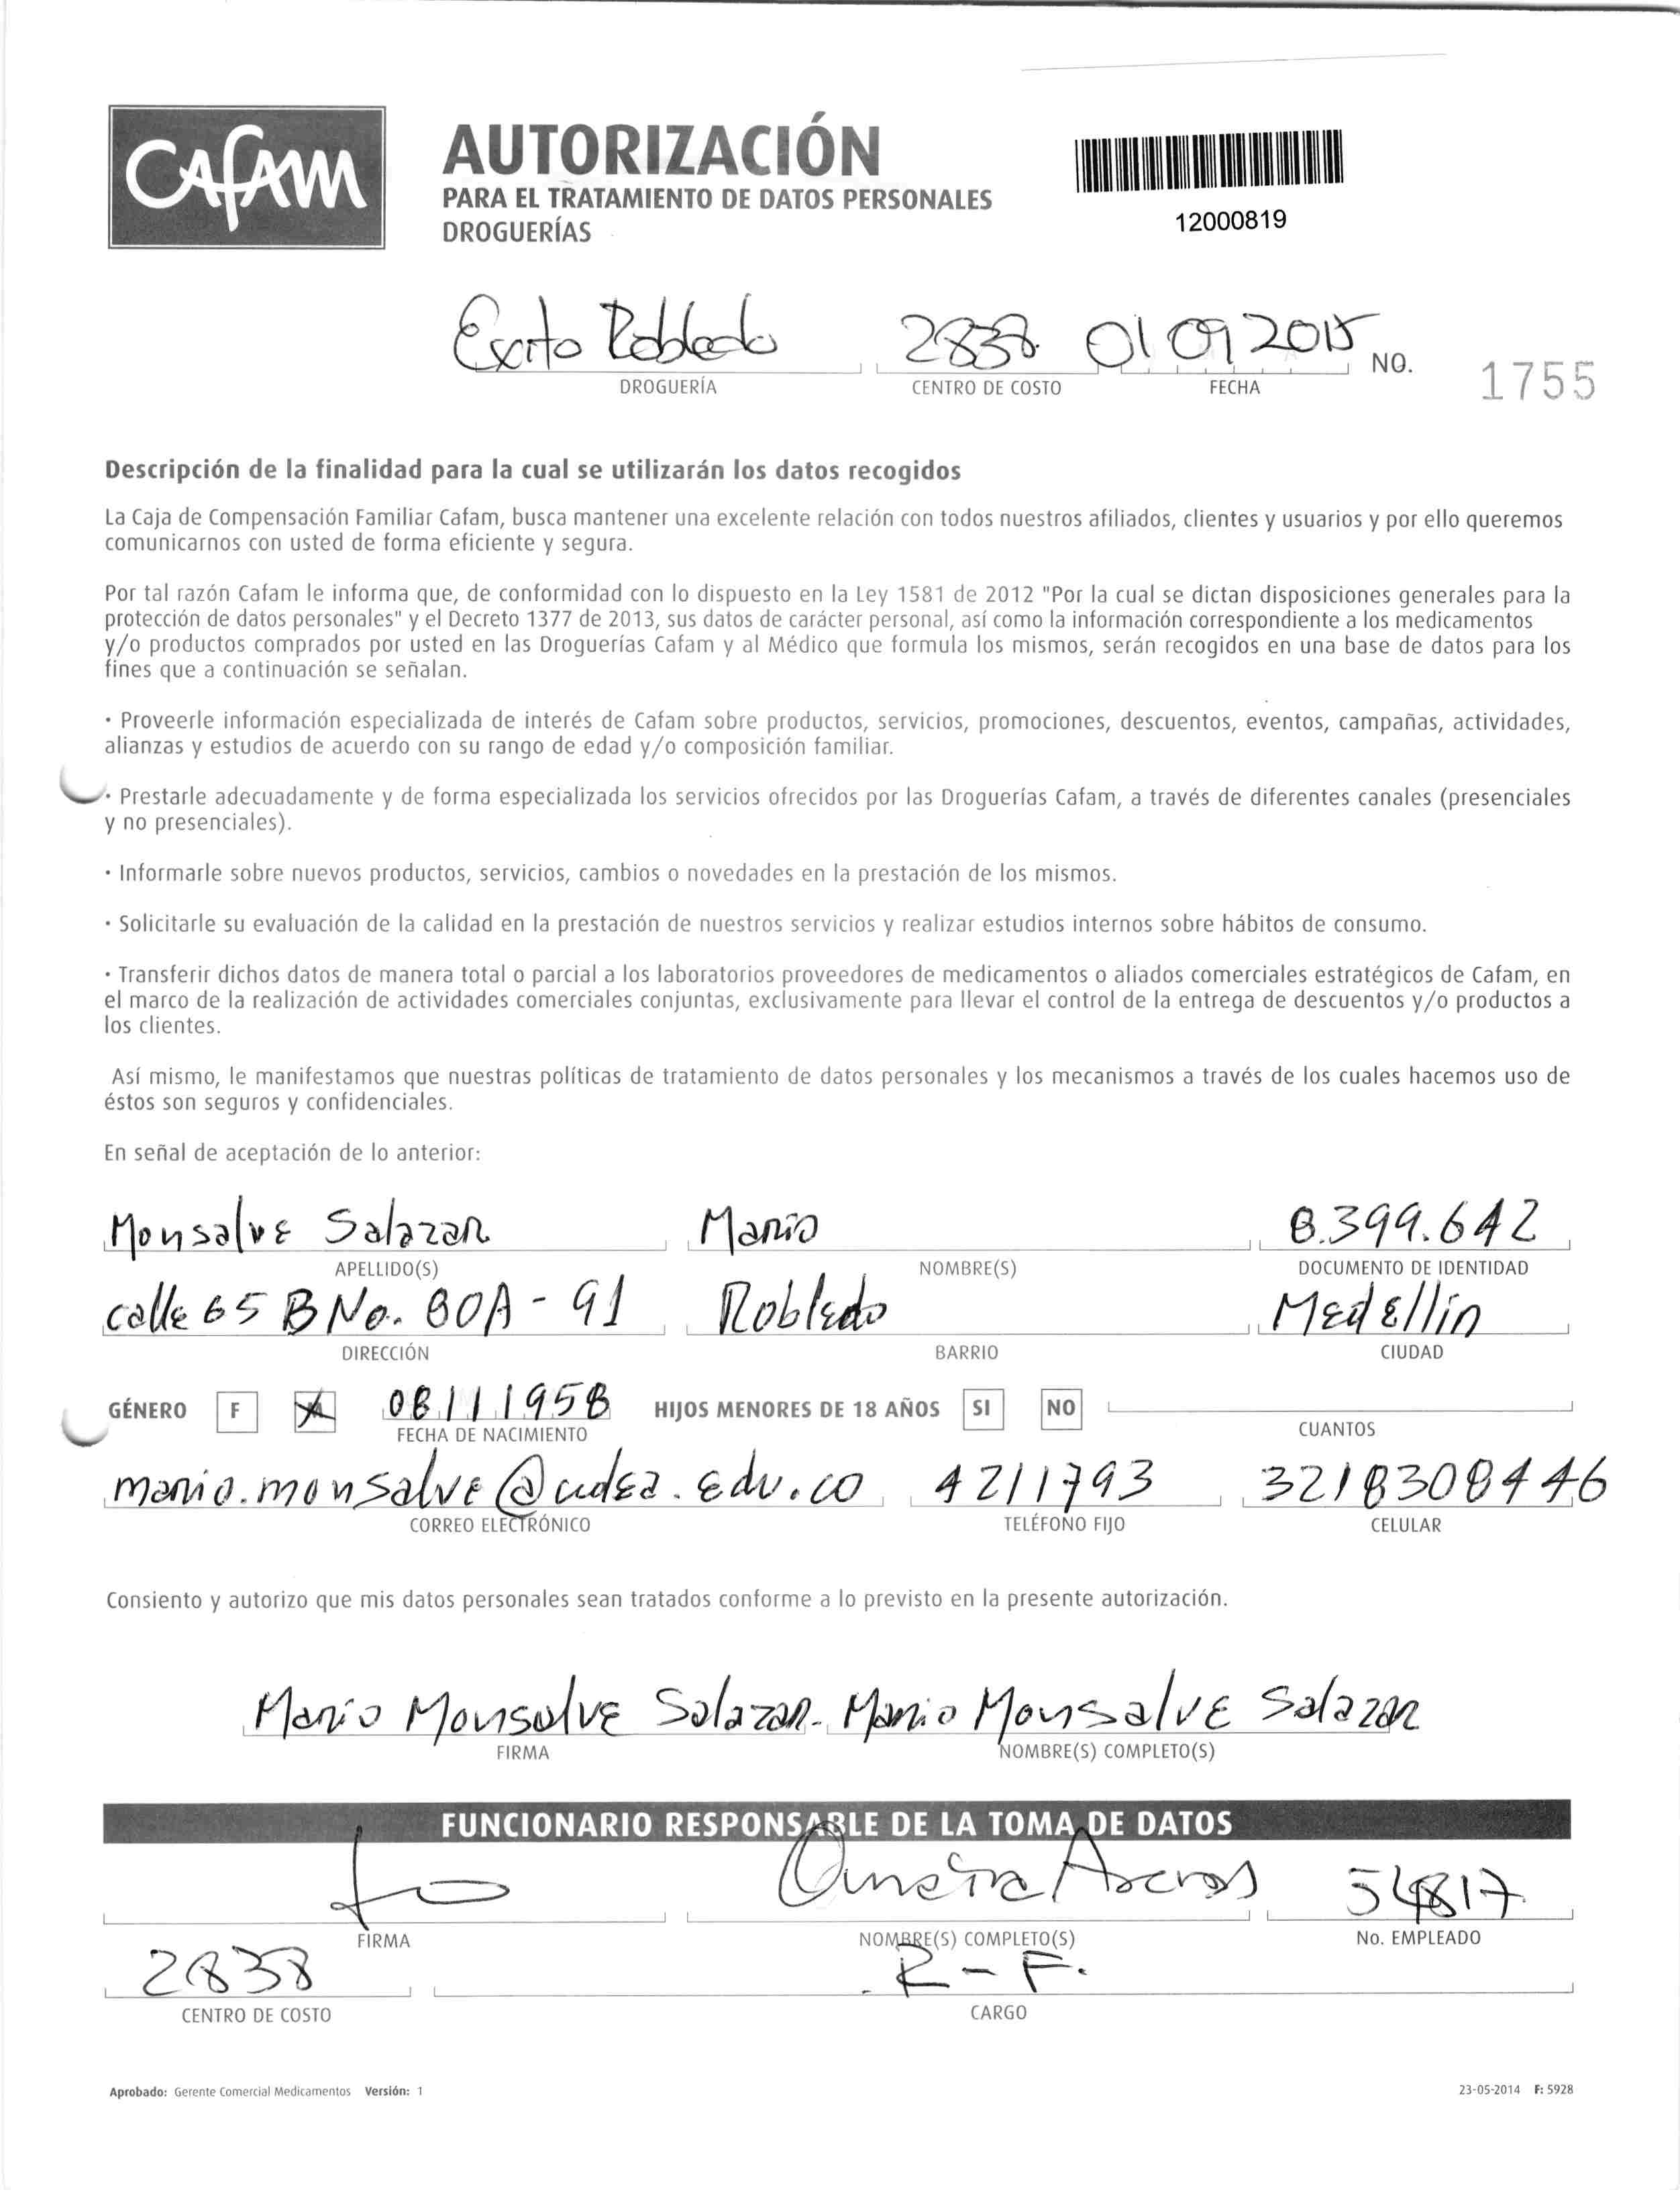 Cafam
AUTORIZACIÓN
PARA EL TRATAMIENTO DE DATOS PERSONALES
DROGUERÍAS
12000819
Exito Robledo 2838 01 09 2015 NO. 1755
DROGUERÍA CENTRO DE COSTO FECHA
Descripción de la finalidad para la cual se utilizarán los datos recogidos
La Caja de Compensación Familiar Cafam, busca mantener una excelente relación con todos nuestros afiliados, clientes y usuarios y por ello queremos
comunicarnos con usted de forma eficiente y segura.
Por tal razón Cafam le informa que, de conformidad con lo dispuesto en la Ley 1581 de 2012 "Por la cual se dictan disposiciones generales para la
protección de datos personales" y el Decreto 1377 de 2013, sus datos de carácter personal, así como la información correspondiente a los medicamentos
y/o productos comprados por usted en las Droguerías Cafam y al Médico que formula los mismos, serán recogidos en una base de datos para los
fines que a continuación se señalan.
· Proveerle información especializada de interés de Cafam sobre productos, servicios, promociones, descuentos, eventos, campañas, actividades,
alianzas y estudios de acuerdo con su rango de edad y/o composición familiar.
· Prestarle adecuadamente y de forma especializada los servicios ofrecidos por las Droguerías Cafam, a través de diferentes canales (presenciales
y no presenciales).
· Informarle sobre nuevos productos, servicios, cambios o novedades en la prestación de los mismos.
· Solicitarle su evaluación de la calidad en la prestación de nuestros servicios y realizar estudios internos sobre hábitos de consumo.
· Transferir dichos datos de manera total o parcial a los laboratorios proveedores de medicamentos o aliados comerciales estratégicos de Cafam, en
el marco de la realización de actividades comerciales conjuntas, exclusivamente para llevar el control de la entrega de descuentos y/o productos a
los clientes.
Así mismo, le manifestamos que nuestras políticas de tratamiento de datos personales y los mecanismos a través de los cuales hacemos uso de
éstos son seguros y confidenciales.
En señal de aceptación de lo anterior:
Monsalve Salazar Mario 8.399.642
APELLIDO(S) NOMBRE(S) DOCUMENTO DE IDENTIDAD
calle 65 B No. 80A - 91 Robledo Medellín
DIRECCIÓN BARRIO CIUDAD
GÉNERO F 08111958 HIJOS MENORES DE 18 AÑOS SI NO
FECHA DE NACIMIENTO CUANTOS
mario.monsalve@udea.edu.co 4211793 3218308446
CORREO ELECTRÓNICO TELÉFONO FIJO CELULAR
Consiento y autorizo que mis datos personales sean tratados conforme a lo previsto en la presente autorización.
Mario Monsalve Salazar. Mario Monsalve Salazar
FIRMA NOMBRE(S) COMPLETO(S)
FUNCIONARIO RESPONSABLE DE LA TOMA DE DATOS
54817
FIRMA NOMBRE(S) COMPLETO(S) No. EMPLEADO
2838 R-F.
CENTRO DE COSTO CARGO
Aprobado: Gerente Comercial Medicamentos Versión: 1 23-05-2014 F: 5928